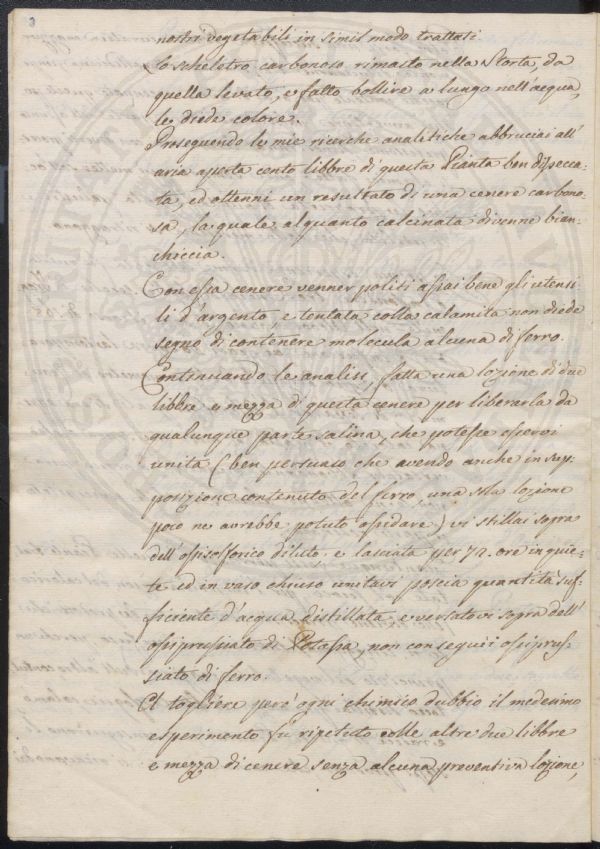 3
nostri vegetabili in simil modo trattati
Lo scheletro carbonoso rimasto nella Storta, da
quella levato, e fatto bollire a lungo nell'acqua,
le diede colore.
Proseguendo le mie ricerche analitiche abbruciai all'
aria aperta cento libbre di questa Pianta ben dissecca-
ta, ed ottenni un resultato di una cenere carbono-
sa, la quale alquanto calcinata divenne bian-
chiccia.
Con essa cenere venner politi assai bene gli utensi
li d'argento, e tentata colla calamita non diede
segno di contenere molecula alcuna di ferro.
Continuando le analisi, fatta una lozione di due
libbre e mezza di questa cenere per liberarla da
qualunque parte salina, che potesse esservi
unita (ben persuaso che avendo anche in sup-
posizione contenuto del ferro, una sola lozione
poco ne avrebbe potuto ossidare) vi stillai sopra
dell'ossisolforico diluto, e lasciata per 72. ore in quie-
te ed in vaso chiuso unitavi poscia quantità suf-
ficiente d'acqua distillata, e versatovi sopra dell'
ossiprussiato di Potassa, non conseguii ossiprus-
siato di ferro.
A togliere però ogni chimico dubbio il medesimo
esperimento fu ripetuto colle altre due libbre
e mezza di cenere senza alcuna preventiva lozione,